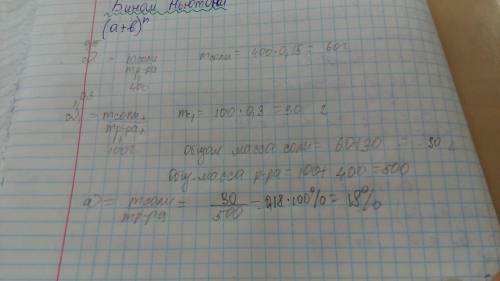 Бином Ньютона
(a+b)ⁿ
ω = mсоли / mр-ра mсоли = 400·0,15 = 60г
400
ω = mсоли₁ / mр-ра₁ m₁ = 100·0,3 = 30 г
100г
Общая масса соли = 60+30 = 90 г
Общ. масса р-ра = 100+400 = 500
ω = mсоли / mр-ра = 90/500 = 0,18·100% = 18%